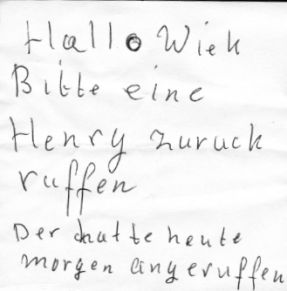 Hallo Wiek
Bitte eine
Henry zuruck
ruffen
Der hatte heute
morgen angeruffen